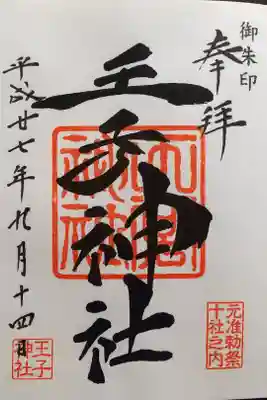 御朱印
奉拝
王子神社
平成廿七年九月十四日
元准勅祭
十社之内
王子
神社